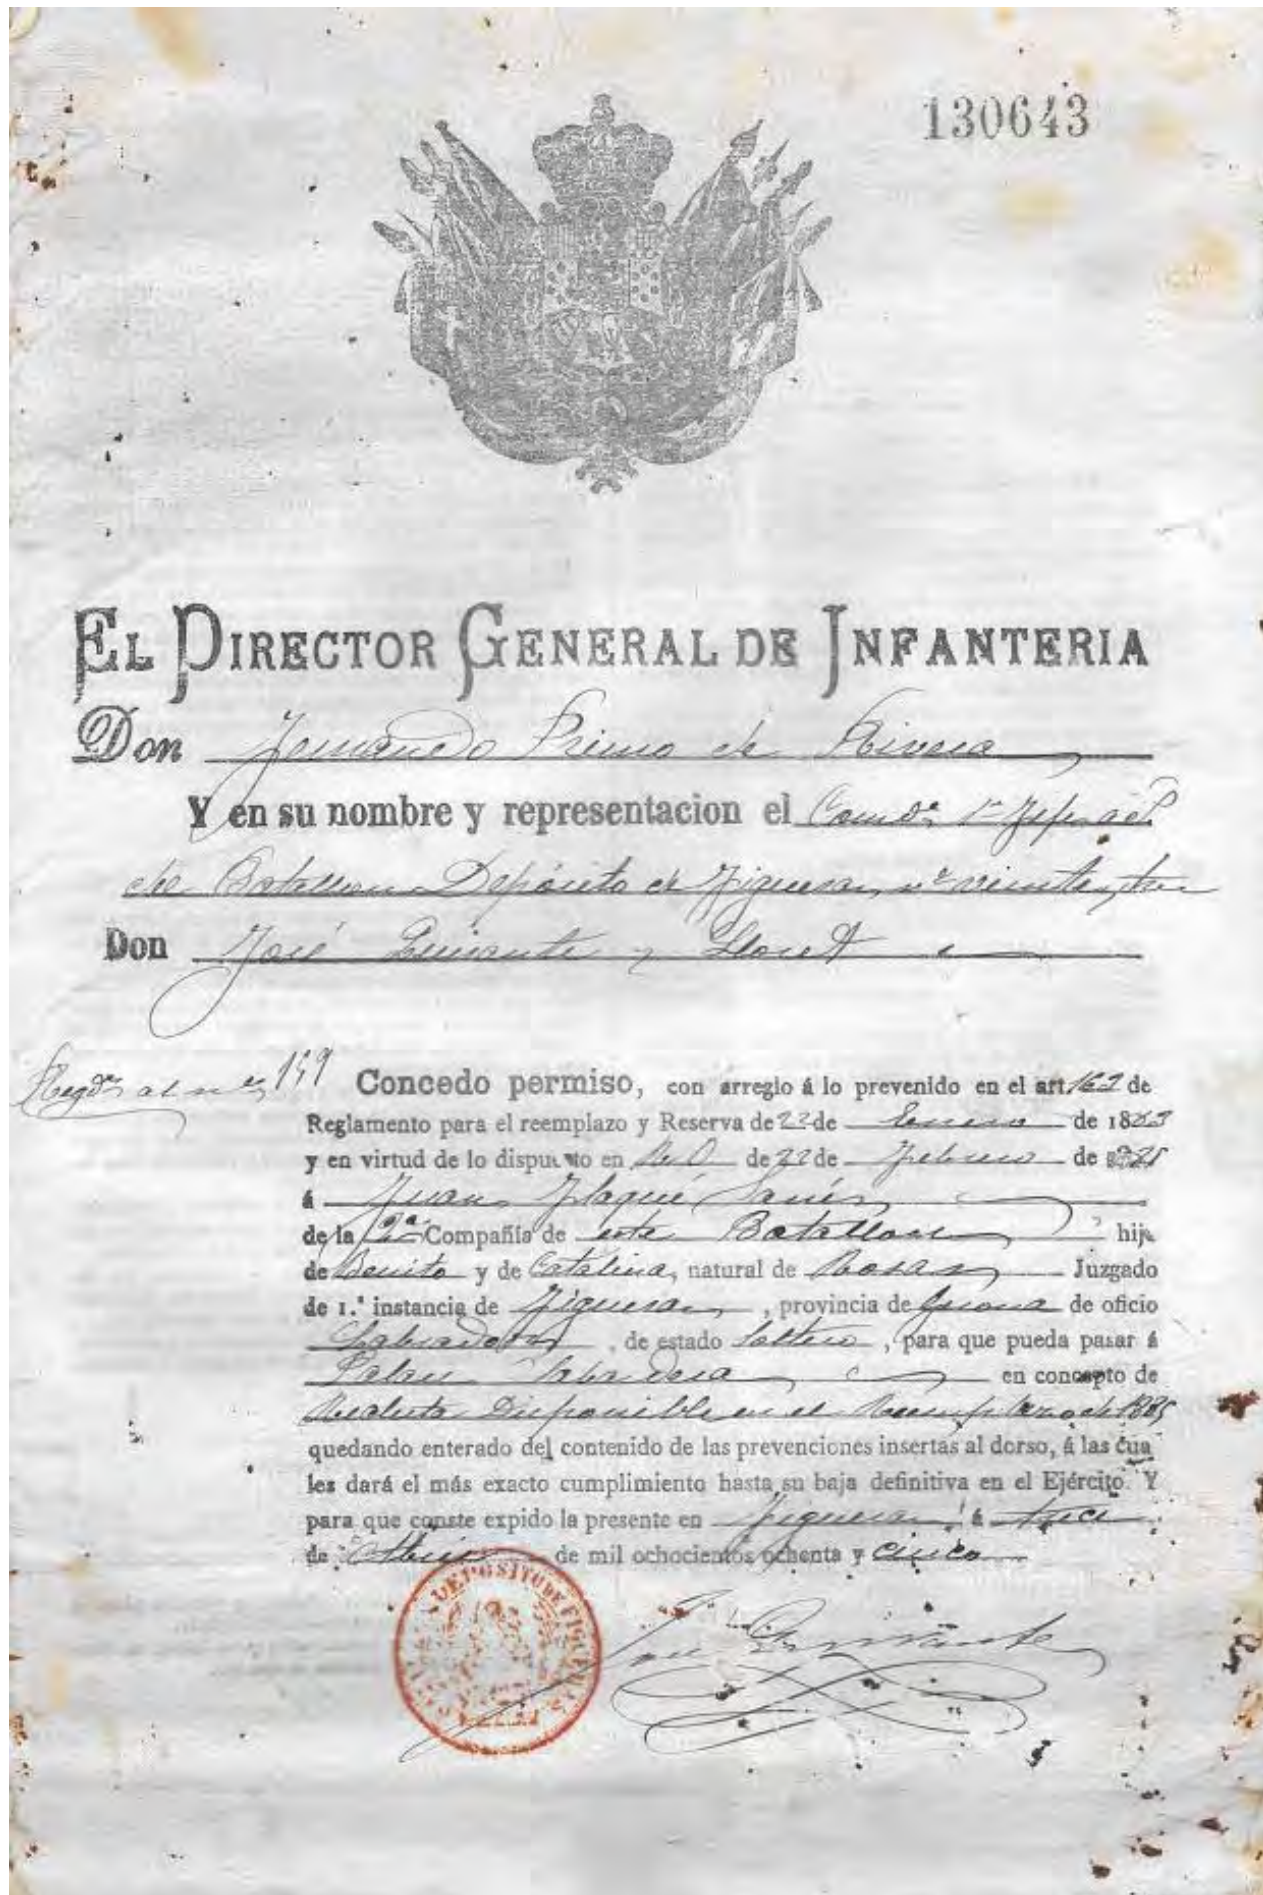 130643
EL DIRECTOR GENERAL DE INFANTERIA
Don Fernando Primo de Rivera
Y en su nombre y representacion el Comdte 1er Jefe
del Batallon Depósito de Figueras, nº veinte, tres
Don José y Lloret
Regdo al nº 159
Concedo permiso, con arreglo á lo prevenido en el art. 162 de
Reglamento para el reemplazo y Reserva de 22 de Enero de 1883
y en virtud de lo dispuesto en R. O. de 22 de Febrero de
á Juan Flaqué
de la 2ª Compañía de este Batallon hijo
de Benito y de Catalina, natural de Rosas Juzgado
de 1.ª instancia de Figueras, provincia de Gerona de oficio
Labrador, de estado Soltero, para que pueda pasar á
Palau Sabardera en concepto de
Recluta Disponible en el Reemplazo de 1885
quedando enterado del contenido de las prevenciones insertas al dorso, á las cua
les dará el más exacto cumplimiento hasta su baja definitiva en el Ejército. Y
para que conste expido la presente en Figueras á trece
de Abril de mil ochocientos ochenta y cinco
DEPOSITO DE FIGUERAS
José